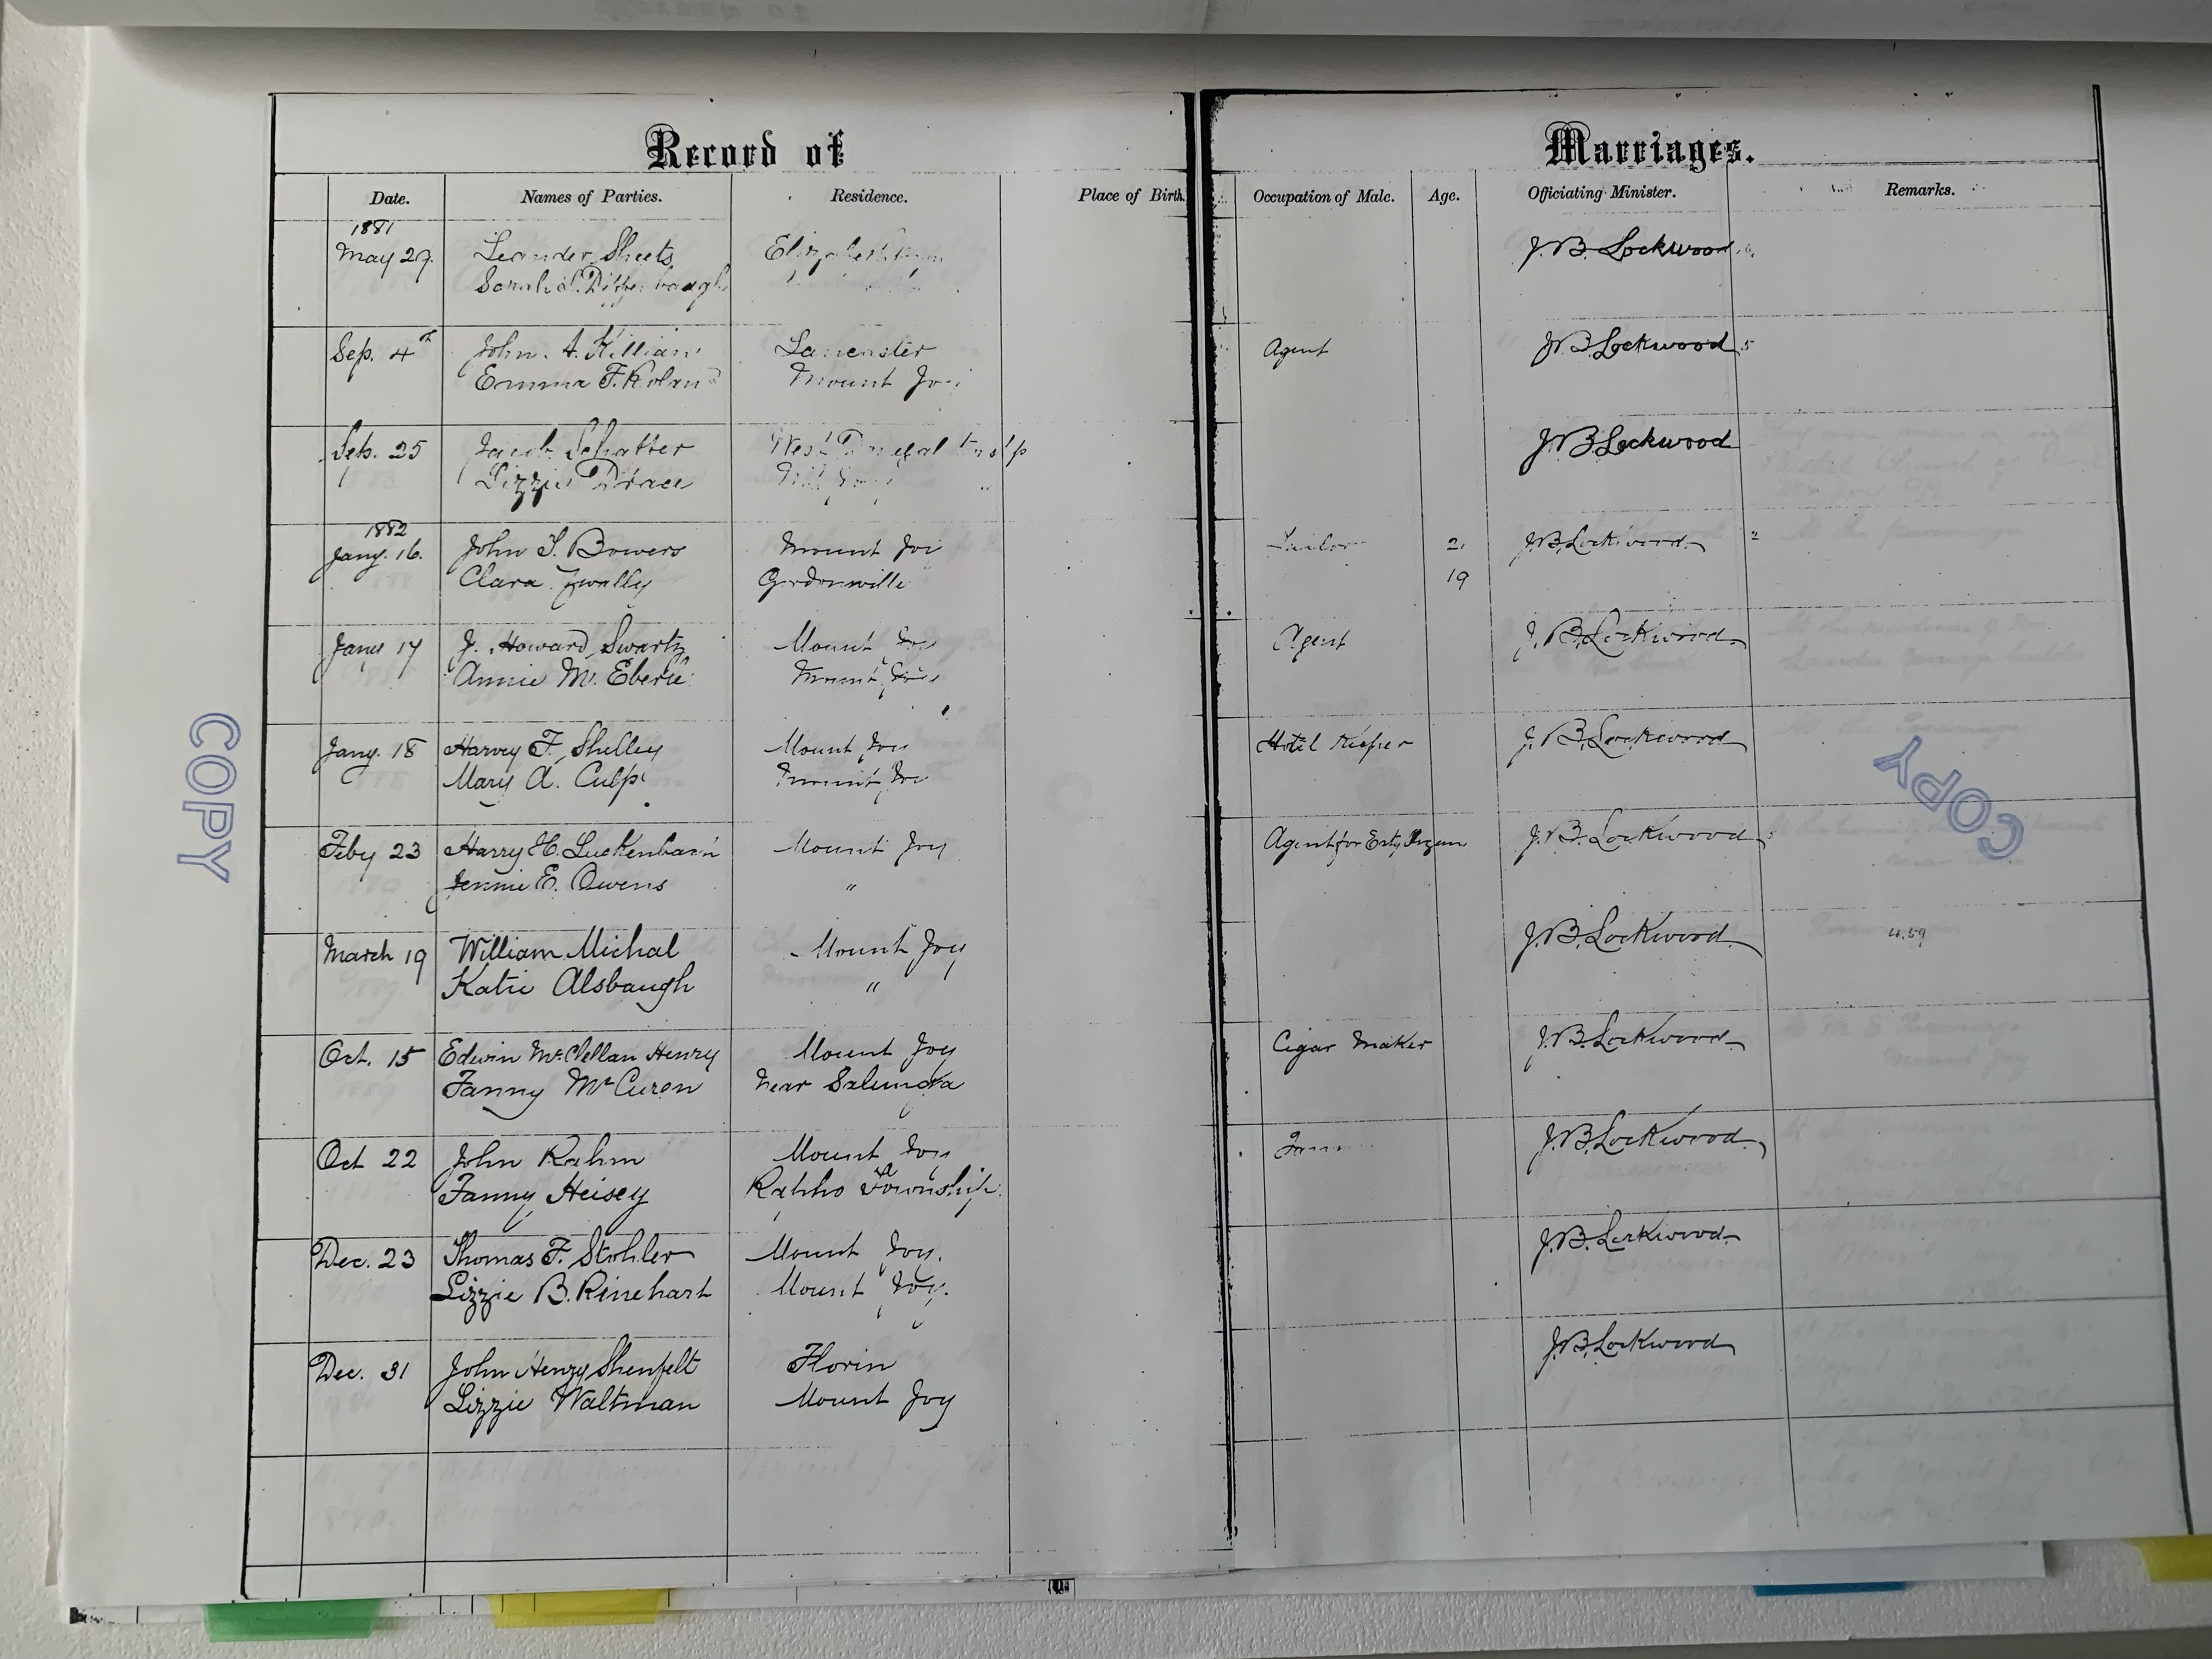 Record of Marriages.
Date. Names of Parties. Residence. Place of Birth. Occupation of Male. Age. Officiating Minister. Remarks.
1881
May 29. Leander Sheets J. B. Lockwood
Sep. 4th John A. Killian Lancaster Agent J. B. Lockwood
Emma F. Mount Joy
Sep. 25 Jacob Schatter West Donegal J B Lockwood
Lizzie
1882
Jany. 16. John S. Bowers Mount Joy J. B. Lockwood
Clara Zwally Gordonville 19
Jany 17 J. Howard Swartz Mount Joy Agent J. B. Lockwood
Annie M. Eberle Mount Joy
Jany. 18 Harvey F. Shelley Mount Joy Hotel Keeper J. B. Lockwood
Mary A. Culp Mount Joy
Feby 23 Harry H. Luckenbach Mount Joy Agent for Esty Organ J. B. Lockwood
Jennie E. Owens "
March 19 William Michal Mount Joy J. B. Lockwood 4.59
Katie Alsbaugh "
Oct. 15 Edwin McClellan Henry Mount Joy Cigar Maker J. B. Lockwood
Fanny McCuren Near Salunga
Oct 22 John Rahm Mount Joy J. B. Lockwood
Fanny Heisey Rapho Township
Dec. 23 Thomas F. Stohler Mount Joy. J. B. Lockwood
Lizzie B. Rinehart Mount Joy.
Dec. 31 John Henry Shenfelt Florin J. B. Lockwood
Lizzie Waltman Mount Joy
COPY
COPY